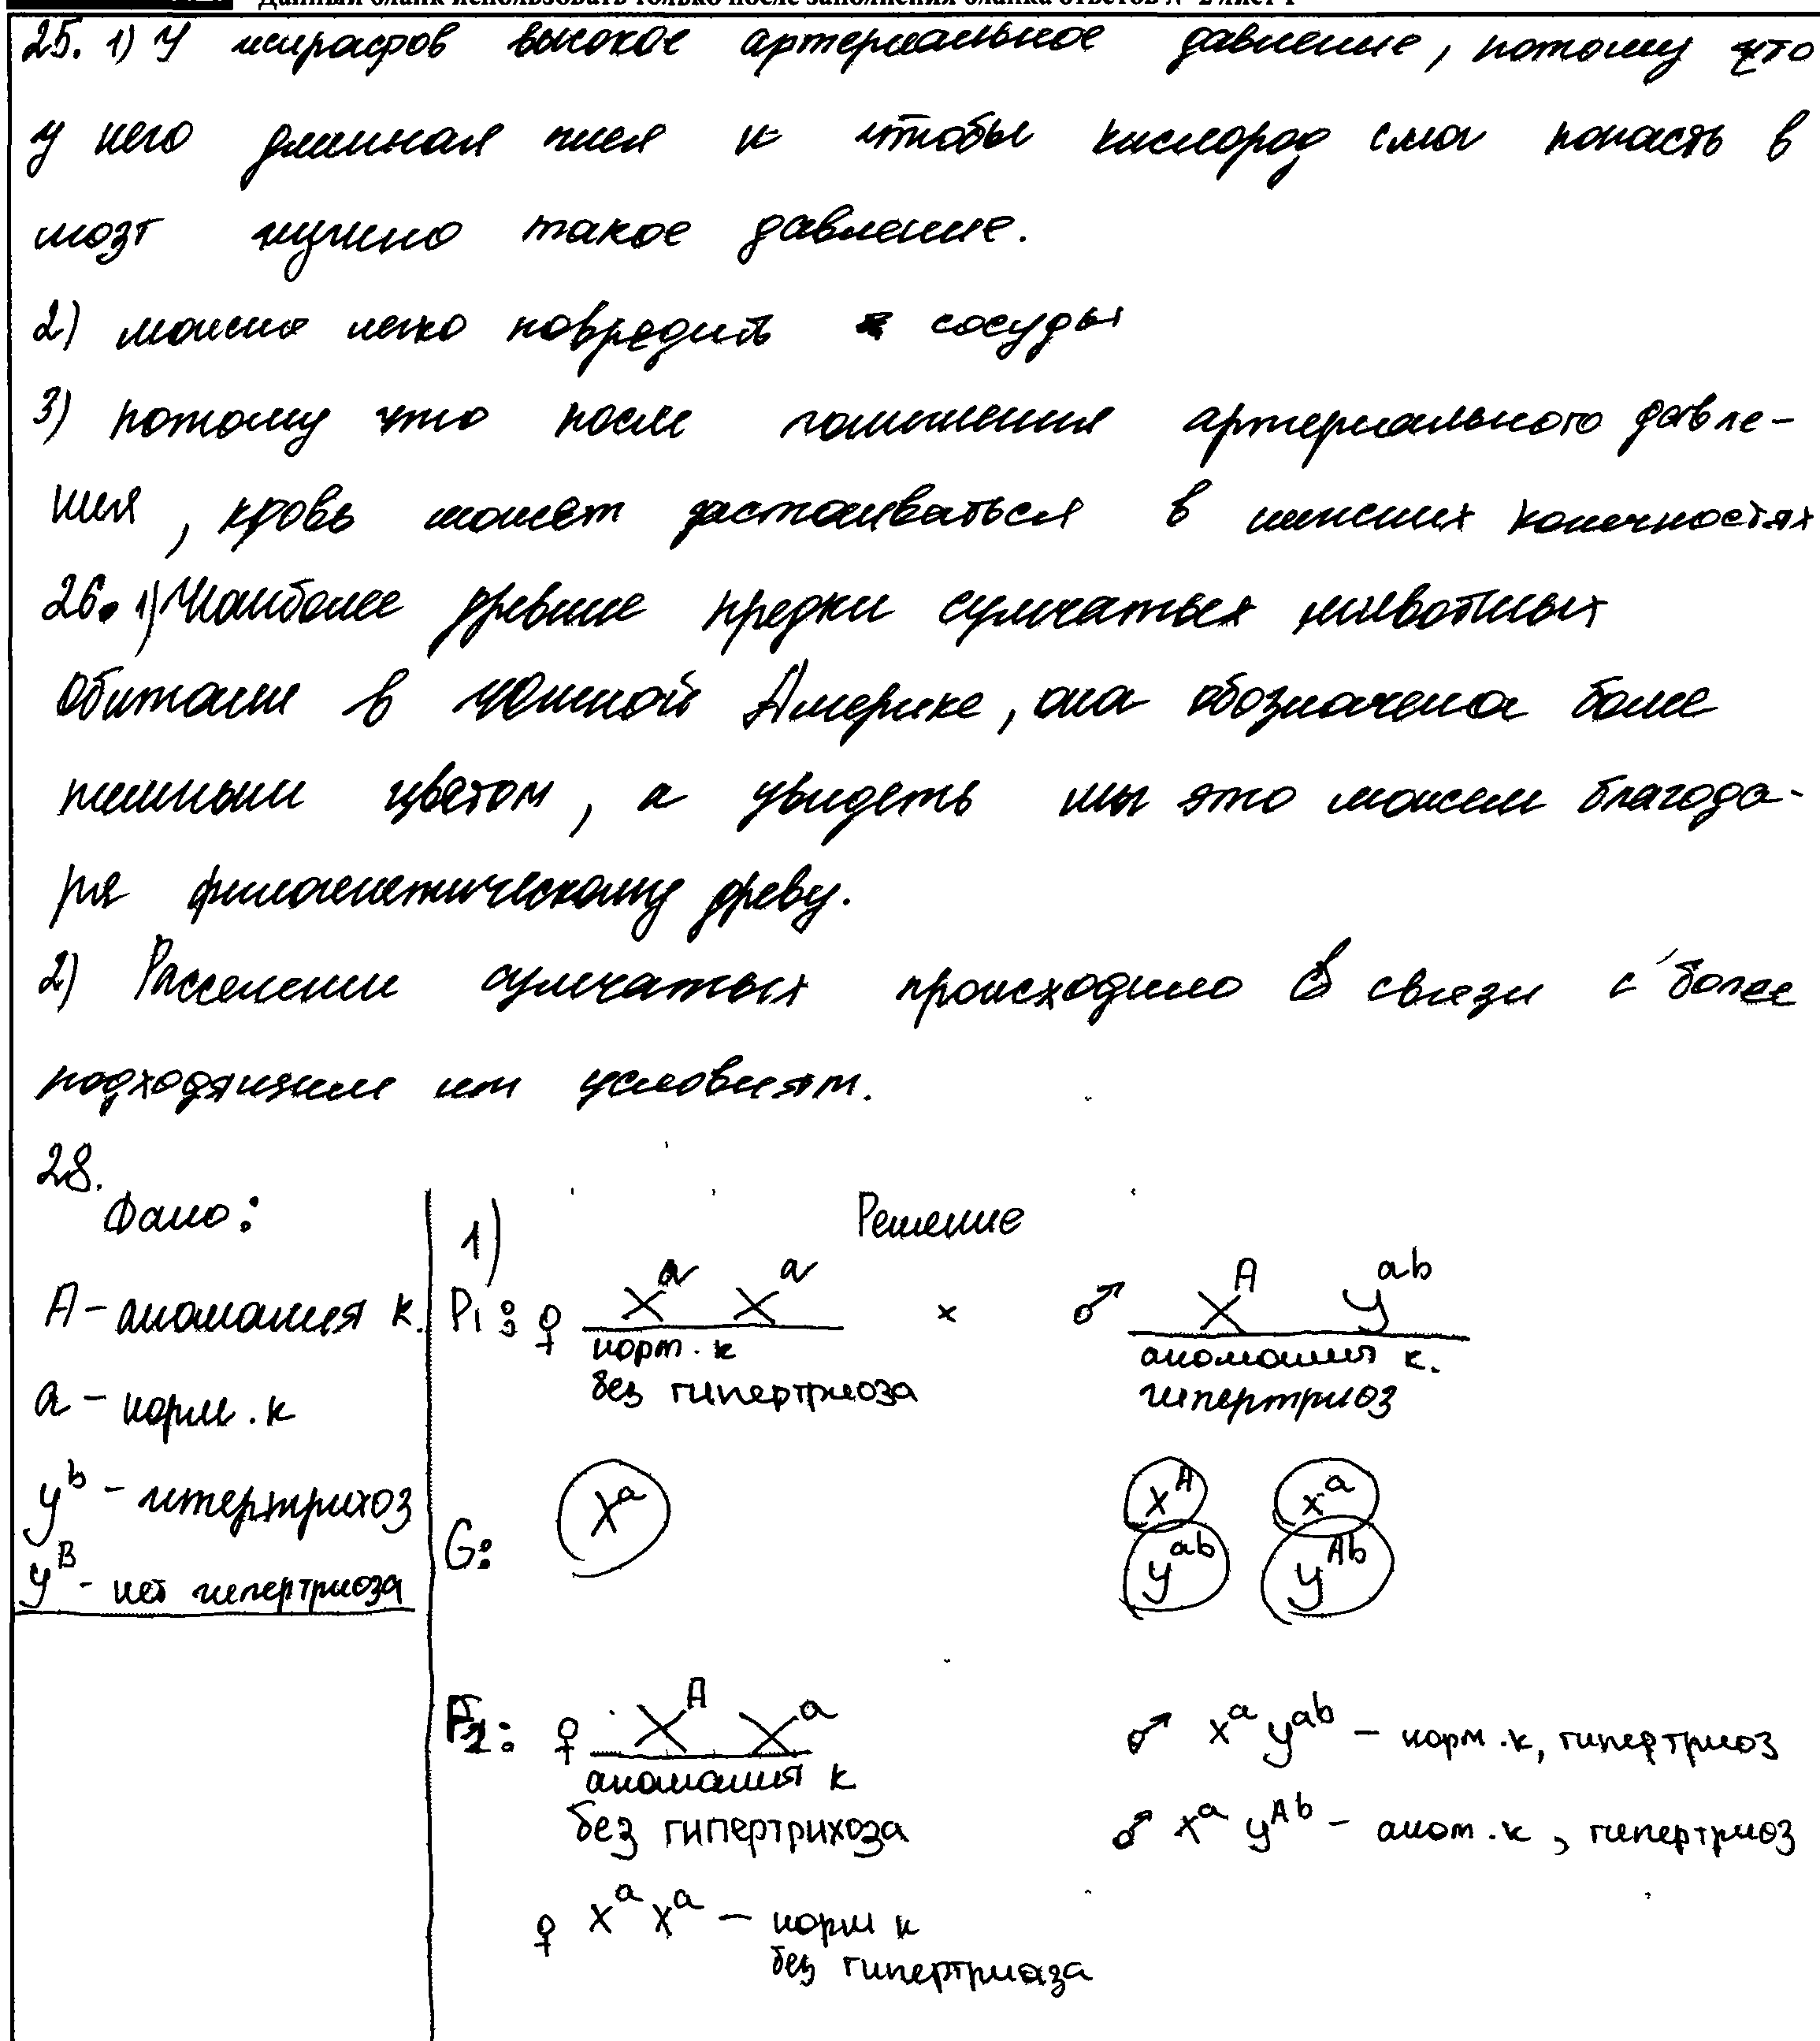 Данный бланк использовать только после заполнения бланка ответов № 2 лист 1
25. 1) У жирафов высокое артериальное давление, потому что
у него длинная шея и чтобы кислород смог попасть в
мозг нужно такое давление.
2) можно легко повредить сосуды
3) потому что после понижения артериального давле-
ния, кровь может застаиваться в нижних конечностях
26. 1) Наиболее древние предки сумчатых животных
обитали в Южной Америке, она обозначена более
темным цветом, а увидеть мы это можем благода-
ря филогенетическому древу.
2) Расселении сумчатых происходило в связи с более
подходящими им условиям.
28.
Дано:
Решение
А - аномалия к.
а - норм. к
y^b - гипертрихоз
y^B - нет гипертриоза
1)
P1: ♀ X^a X^a × ♂ X^A Y^ab
норм. к аномалия к.
без гипертриоза гипертриоз
G: X^a X^A X^a
y^ab y^Ab
F1: ♀ X^A X^a ♂ X^a y^ab - норм. к, гипертриоз
аномалия к
без гипертрихоза ♂ X^a y^Ab - аном. к, гипертриоз
♀ X^a X^a - норм к
без гипертриоза